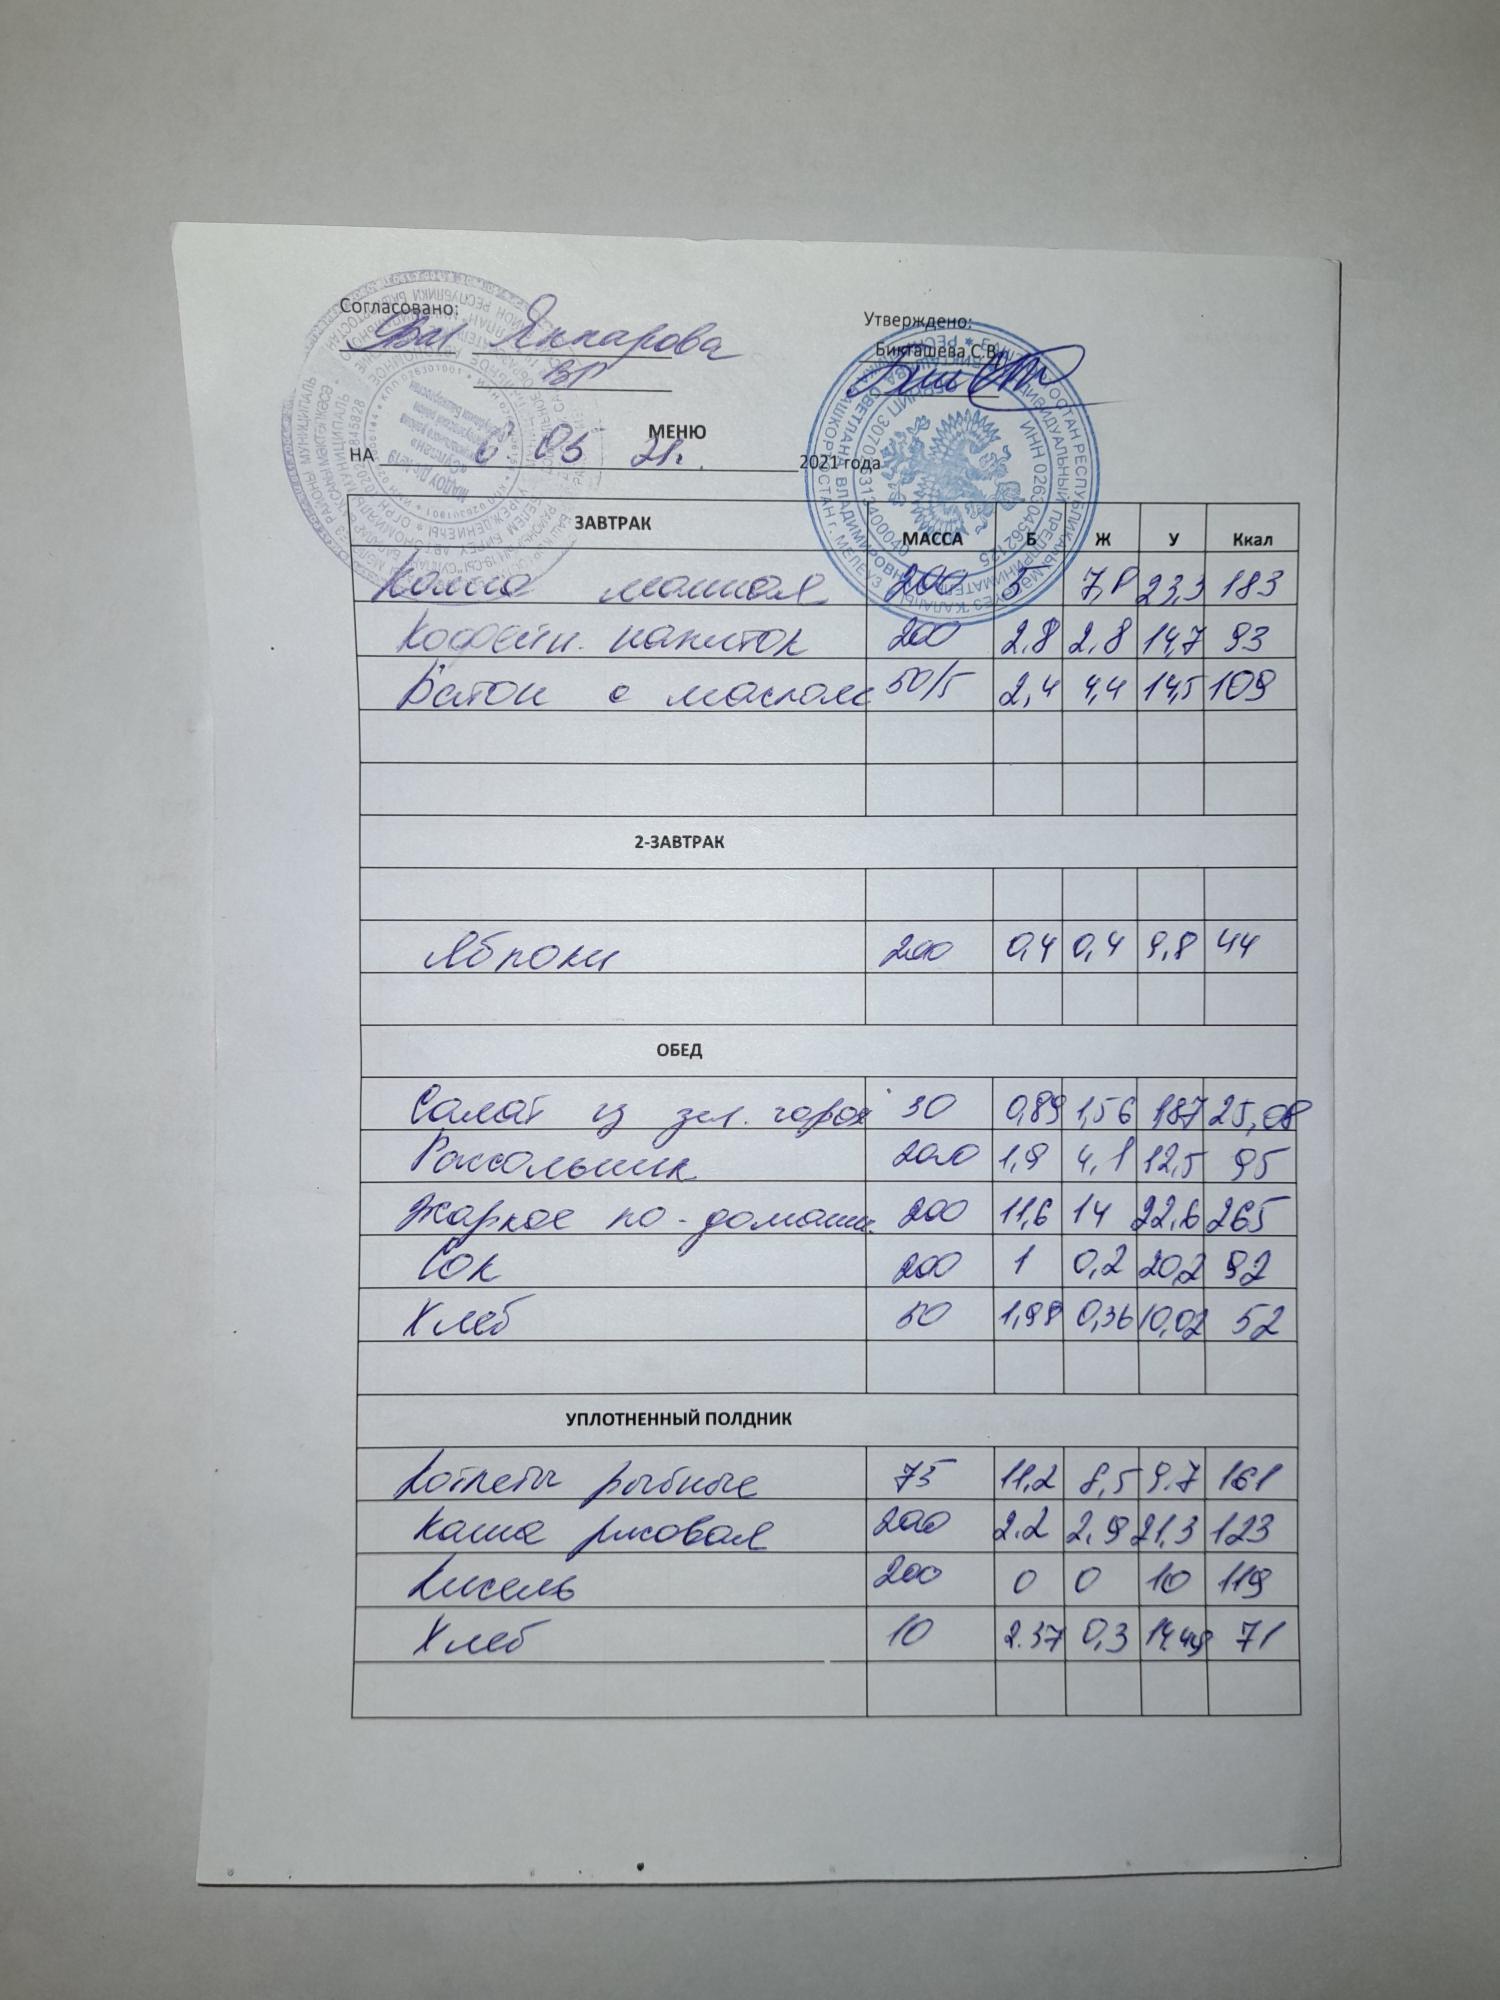 Согласовано:
Утверждено:
Янчарова
Бикташева С.В.
ВГ
МЕНЮ
НА 6. 05 21г. 2021 года
ЗАВТРАК МАССА Б Ж У Ккал
Каша манная 200 5 7,8 23,3 183
Кофейн. напиток 200 2.8 2,8 14,7 93
Батон с маслом 50/5 2,4 4,4 14,5 109
2-ЗАВТРАК
Яблоки 200 0,4 0,4 9,8 44
ОБЕД
Салат из зел. горох 30 0,89 1,56 1,87 25,08
Рассольник 200 1,9 4,1 12,5 95
Жаркое по-домашн. 200 11,6 14 22,6 265
Сок 200 1 0,2 20,2 92
Хлеб 50 1,98 0,36 10,02 52
УПЛОТНЕННЫЙ ПОЛДНИК
Котлеты рыбные 75 11,2 8,5 9.7 161
Каша рисовая 200 2.2 2,9 21,3 123
Кисель 200 0 0 10 119
Хлеб 10 2.37 0,3 14,49 71